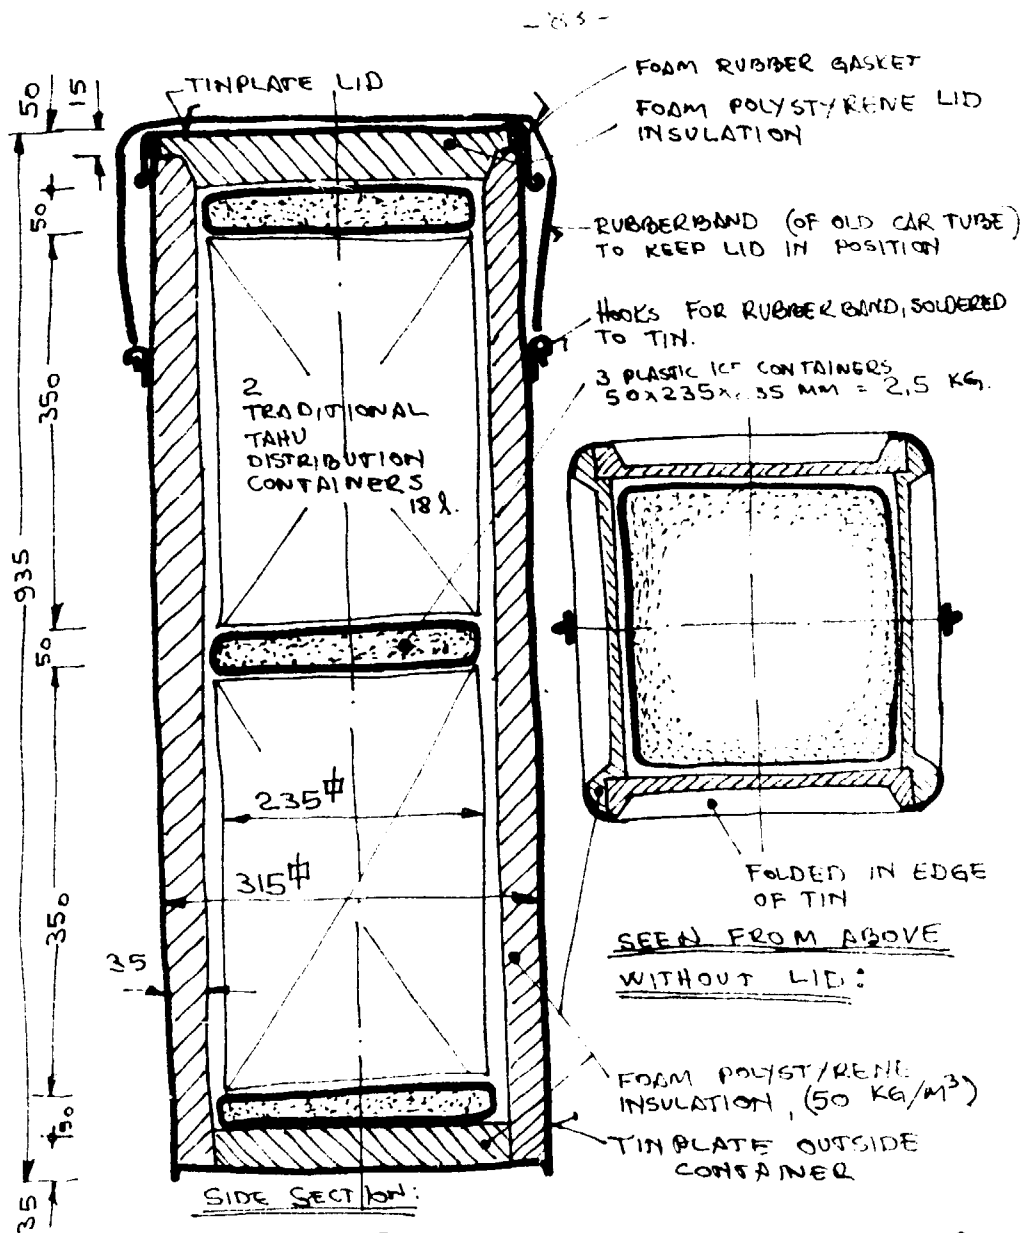 TINPLATE LID
FOAM RUBBER GASKET
FOAM POLYSTYRENE LID
INSULATION
RUBBERBAND (OF OLD CAR TUBE)
TO KEEP LID IN POSITION
HOOKS FOR RUBBERBAND, SOLDERED
TO TIN.
3 PLASTIC ICE CONTAINERS
50x235x 35 MM = 2,5 KG.
50
15
50
350
935
50
350
50
35
2
TRADITIONAL
TAHU
DISTRIBUTION
CONTAINERS
18 l.
235
315
35
FOLDED IN EDGE
OF TIN
SEEN FROM ABOVE
WITHOUT LID:
FOAM POLYSTYRENE
INSULATION, (50 KG/M³)
TINPLATE OUTSIDE
CONTAINER
SIDE SECTION: